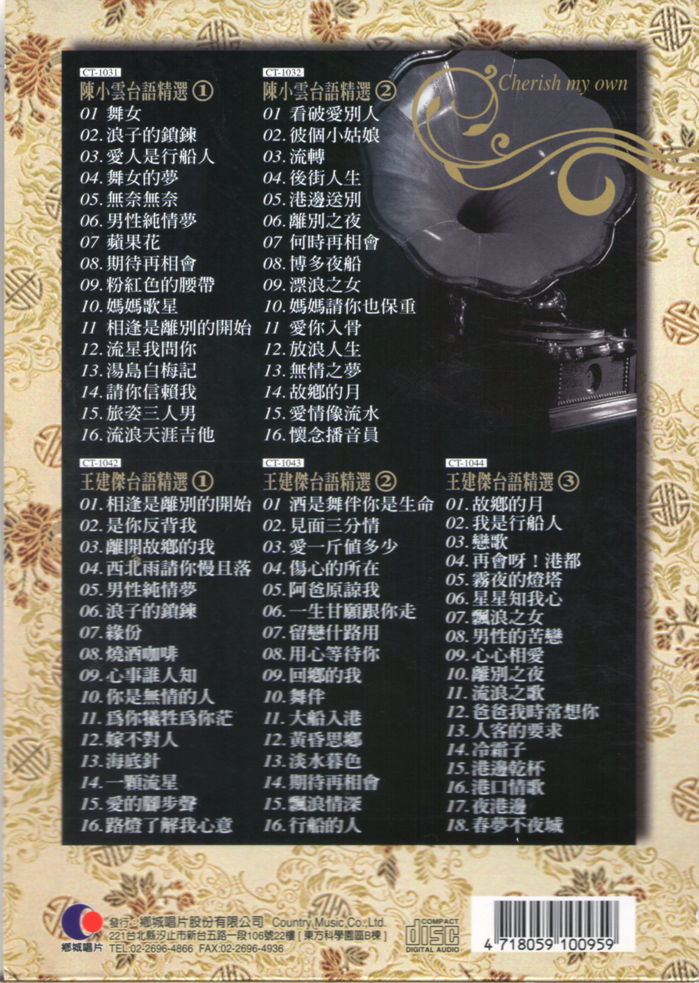 Cherish my own
CT-1031
陳小雲台語精選①
01 舞女
02.浪子的鎖鍊
03.愛人是行船人
04.舞女的夢
05.無奈無奈
06.男性純情夢
07 蘋果花
08.期待再相會
09.粉紅色的腰帶
10.媽媽歌星
11 相逢是離別的開始
12.流星我問你
13.湯島白梅記
14.請你信賴我
15.旅姿三人男
16.流浪天涯吉他
CT-1032
陳小雲台語精選②
01 看破愛別人
02.彼個小姑娘
03.流轉
04.後街人生
05.港邊送別
06.離別之夜
07 何時再相會
08.博多夜船
09.漂浪之女
10.媽媽請你也保重
11 愛你入骨
12.放浪人生
13.無情之夢
14.故鄉的月
15.愛情像流水
16.懷念播音員
CT-1042
王建傑台語精選①
01.相逢是離別的開始
02.是你反背我
03.離開故鄉的我
04.西北雨請你慢且落
05.男性純情夢
06.浪子的鎖鍊
07.緣份
08.燒酒咖啡
09.心事誰人知
10.你是無情的人
11.為你犧牲為你茫
12.嫁不對人
13.海底針
14.一顆流星
15.愛的腳步聲
16.路燈了解我心意
CT-1043
王建傑台語精選②
01 酒是舞伴你是生命
02.見面三分情
03.愛一斤值多少
04.傷心的所在
05.阿爸原諒我
06.一生甘願跟你走
07.留戀什路用
08.用心等待你
09.回鄉的我
10.舞伴
11.大船入港
12.黃昏思鄉
13.淡水暮色
14.期待再相會
15.飄浪情深
16.行船的人
CT-1044
王建傑台語精選③
01.故鄉的月
02.我是行船人
03.戀歌
04.再會呀！港都
05.霧夜的燈塔
06.星星知我心
07.飄浪之女
08.男性的苦戀
09.心心相愛
10.離別之夜
11.流浪之歌
12.爸爸我時常想你
13.人客的要求
14.冷霜子
15.港邊乾杯
16.港口情歌
17.夜港邊
18.春夢不夜城
鄉城唱片
發行：鄉城唱片股份有限公司 Country Music Co.,Ltd.
221台北縣汐止市新台五路一段106號22樓 [ 東方科學園區B棟 ]
TEL:02-2696-4866 FAX:02-2696-4936
COMPACT
disc
DIGITAL AUDIO
4 718059 100959